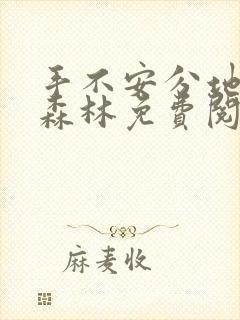 手不安分地
森林免费阅
麻麦收